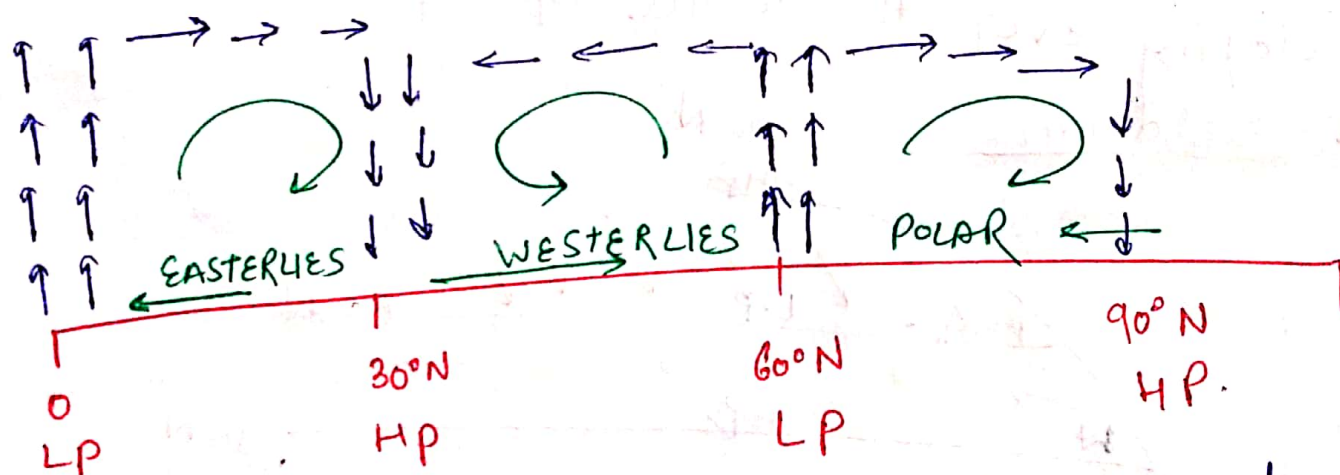 EASTERLIES
WESTERLIES
POLAR
0
LP
30°N
HP
60°N
LP
90°N
HP.